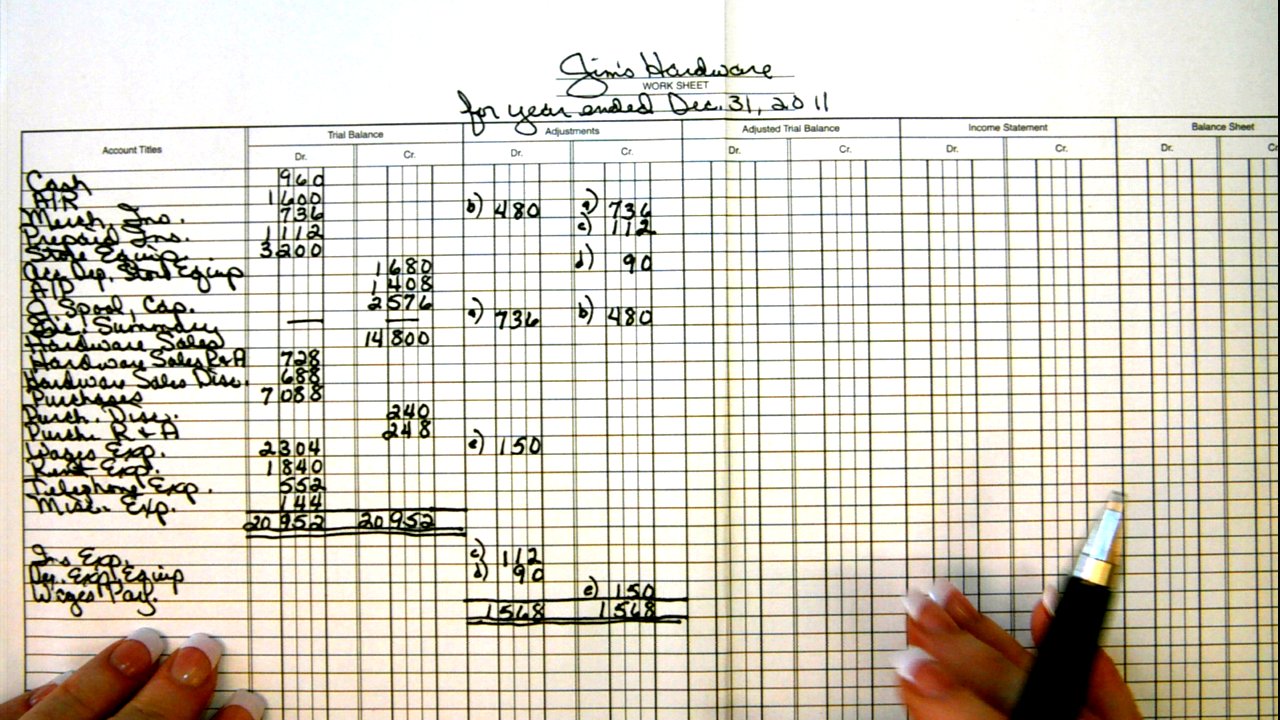 Jim's Hardware
WORK SHEET
for year ended Dec. 31, 2011
Account Titles Trial Balance Adjustments Adjusted Trial Balance Income Statement Balance Sheet
Dr. Cr. Dr. Cr. Dr. Cr. Dr. Cr. Dr. Cr
Cash 960
A/R 1 600
Merch. Inv. 736 b) 480 a) 736
Prepaid Ins. 1 112 c) 112
Store Equip. 3 200
Acc. Dep. Store Equip 1 680 d) 90
A/P 1 408
O. Spool, Cap. 2 576
Inc. Summary — — a) 736 b) 480
Hardware Sales 14 800
Hardware Sales R&A 728
Hardware Sales Disc. 688
Purchases 7 088
Purch. Disc. 240
Purch. R & A 248
Wages Exp. 2 304 e) 150
Rent Exp. 1 840
Telephone Exp. 552
Misc. Exp. 144
20 952 20 952
Ins Exp. c) 112
Dep. Exp. Equip d) 90
Wages Pay. e) 150
1 568 1 568